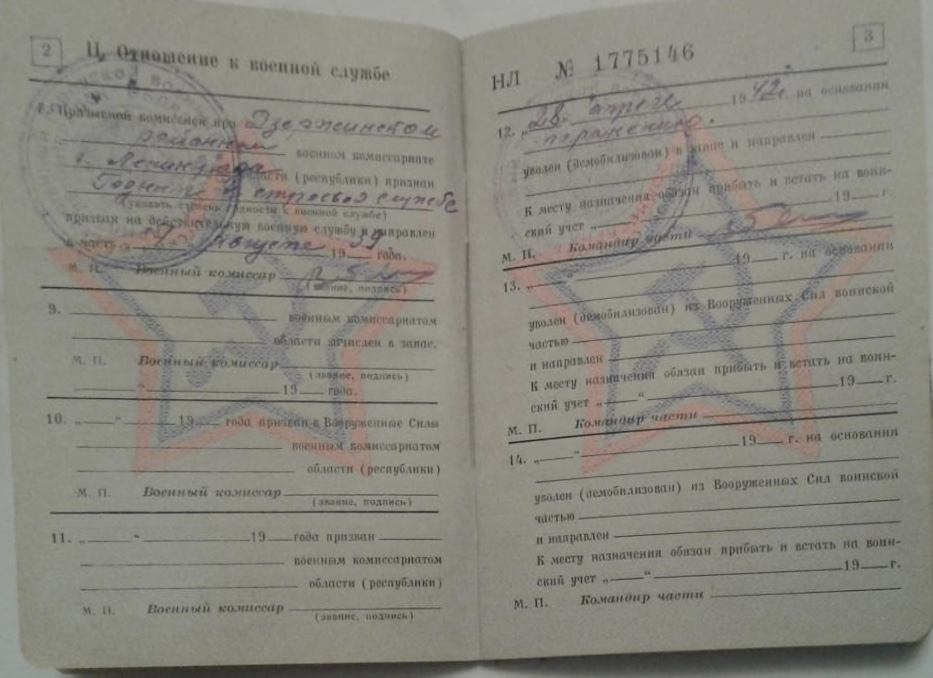 2
II. Отношение к военной службе
8. Призывной комиссией при Дзержинском
районном военном комиссариате
г. Ленинграда области (республики) признан
Годным к строевой службе
(указать степень годности к военной службе)
призван на действительную военную службу и направлен
в часть „ “ Августе 1939 года.
М. П. Военный комиссар
(звание, подпись)
9.
военным комиссариатом
области зачислен в запас.
М. П. Военный комиссар
(звание, подпись)
„ “ 19 года.
10. „ “ 19 года призван в Вооруженные Силы
военным комиссариатом
области (республики)
М. П. Военный комиссар
(звание, подпись)
11. „ “ 19 года призван
военным комиссариатом
области (республики)
М. П. Военный комиссар
(звание, подпись)
3
НЛ № 1775146
12. „28“ 1942 г. на основании
уволен (демобилизован) в и направлен
К месту назначения обязан прибыть и встать на воин-
ский учет „ “ 19 г.
М. П. Командир части
13. „ “ 19 г. на основании
уволен (демобилизован) из Вооруженных Сил воинской
частью
и направлен
К месту назначения обязан прибыть и встать на воин-
ский учет „ “ 19 г.
М. П. Командир части
14. „ “ 19 г. на основании
уволен (демобилизован) из Вооруженных Сил воинской
частью
и направлен
К месту назначения обязан прибыть и встать на воин-
ский учет „ “ 19 г.
М. П. Командир части